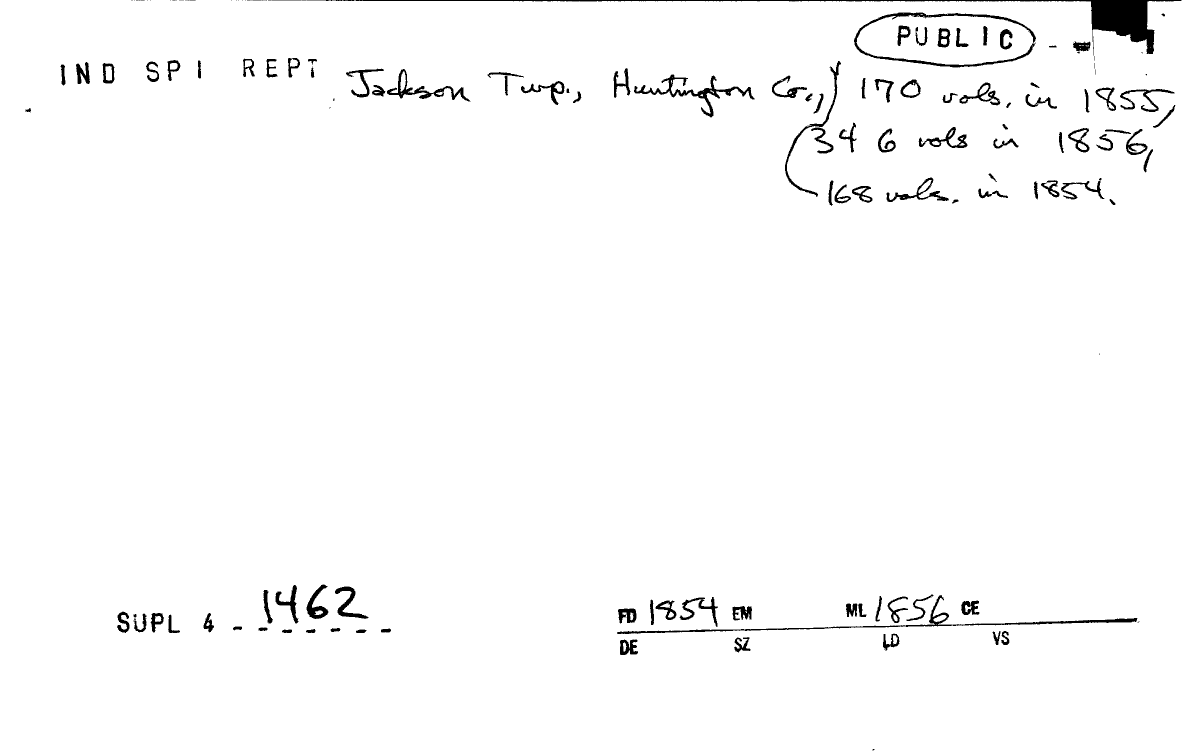 PUBLIC
IND SPI REPT Jackson Twp., Huntington Co., 170 vols. in 1855,
346 vols in 1856,
168 vols. in 1854.
SUPL 4 - 1462
FD 1854 EM ML 1856 CE
DE SZ LD VS